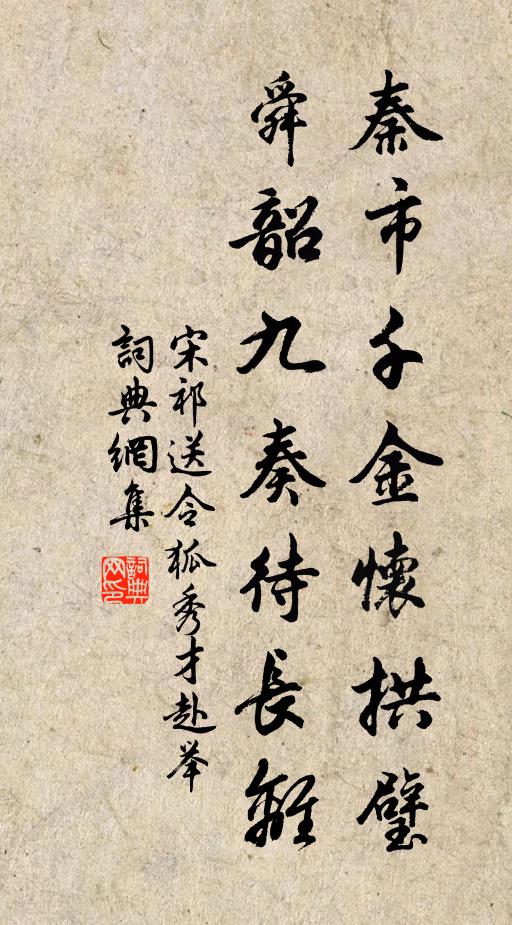 秦市千金懷拱璧
舜韶九奏待長離
宋祁送令狐秀才赴举
詞典網集
詞典网印